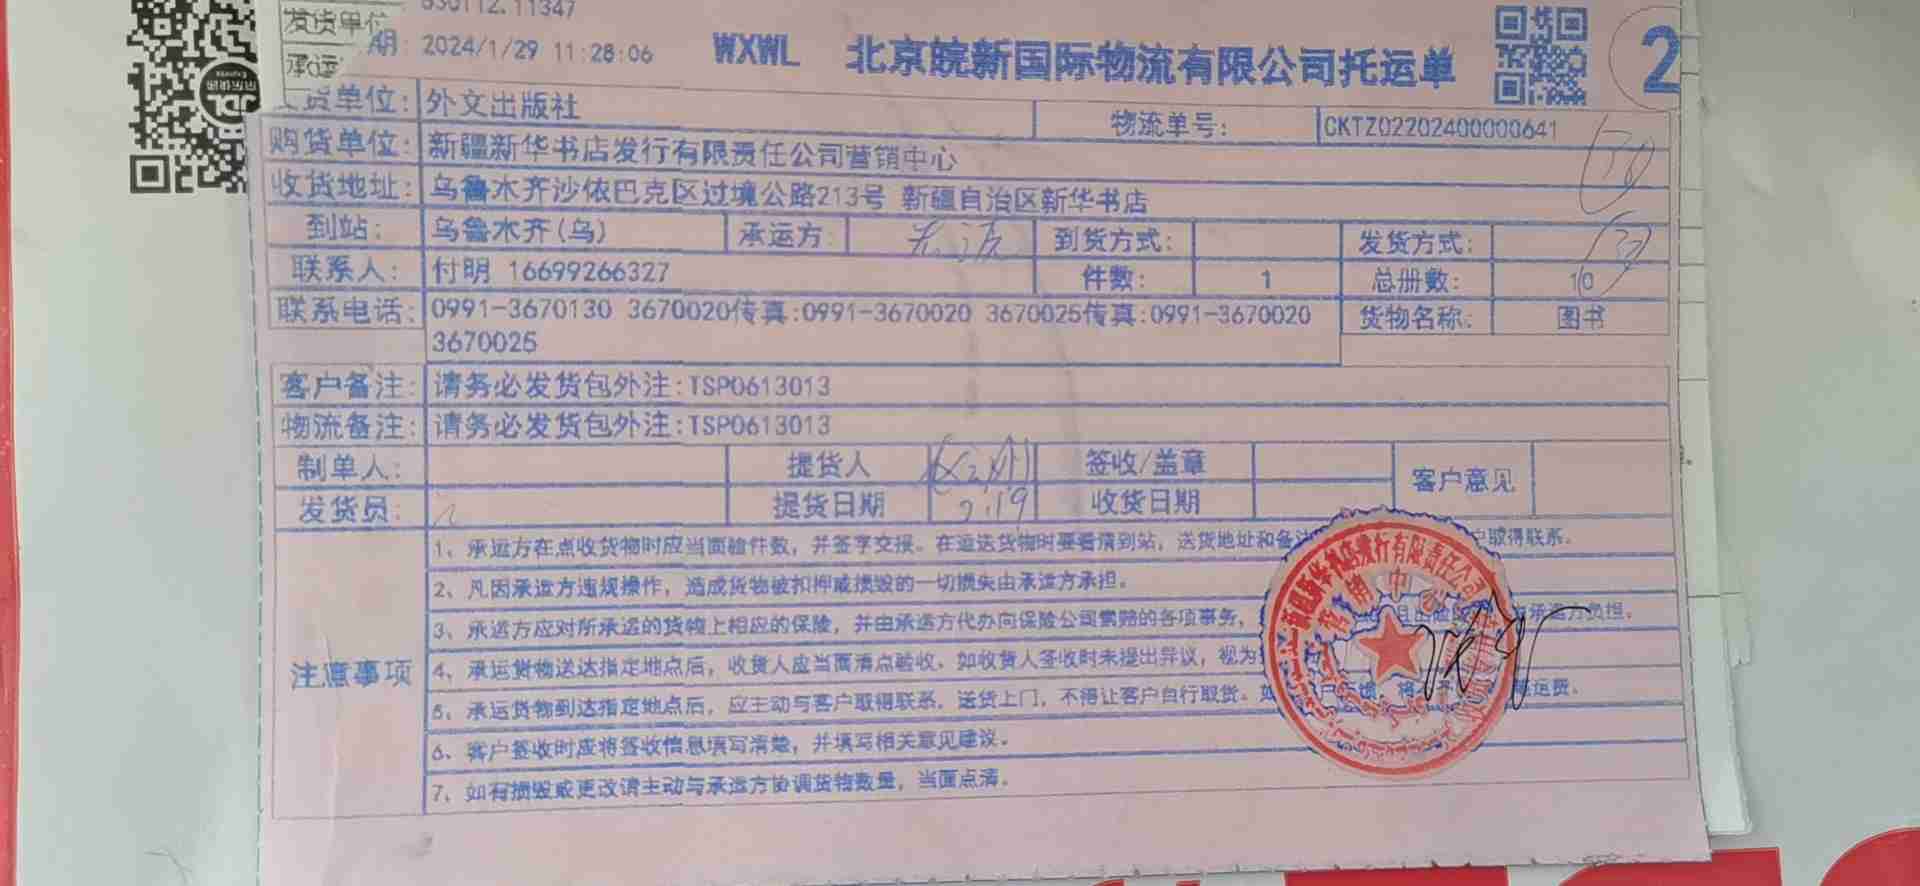 发货单位
承运
期: 2024/1/29 11:28:06
WXWL 北京皖新国际物流有限公司托运单
2
货单位: 外文出版社 物流单号: CKTZ02202400000641
购货单位: 新疆新华书店发行有限责任公司营销中心
收货地址: 乌鲁木齐沙依巴克区过境公路213号 新疆自治区新华书店
到站: 乌鲁木齐(乌) 承运方: 到货方式: 发货方式:
联系人: 付明 16699266327 件数: 1 总册数: 10
联系电话: 0991-3670130 3670020传真:0991-3670020 3670025传真:0991-3670020 货物名称: 图书
3670025
客户备注: 请务必发货包外注:TSP0613013
物流备注: 请务必发货包外注:TSP0613013
制单人: 提货人 签收/盖章 客户意见
发货员: 提货日期 2.19 收货日期
注意事项
1、承运方在点收货物时应当面验件数，并签字交接。在运送货物时要看清到站，送货地址和备注 户取得联系。
2、凡因承运方违规操作，造成货物被扣押或损毁的一切损失由承运方承担。
3、承运方应对所承运的货物上相应的保险，并由承运方代办向保险公司索赔的各项事务， 承运方负担。
4、承运货物送达指定地点后，收货人应当面清点验收、如收货人签收时未提出异议，视为
5、承运货物到达指定地点后，应主动与客户取得联系、送货上门，不得让客户自行取货。如 运费。
6、客户签收时应将签收信息填写清楚，并填写相关意见建议。
7、如有损毁或更改请主动与承运方协调货物数量，当面点清。
新疆新华书店发行有限责任公司
营销中心